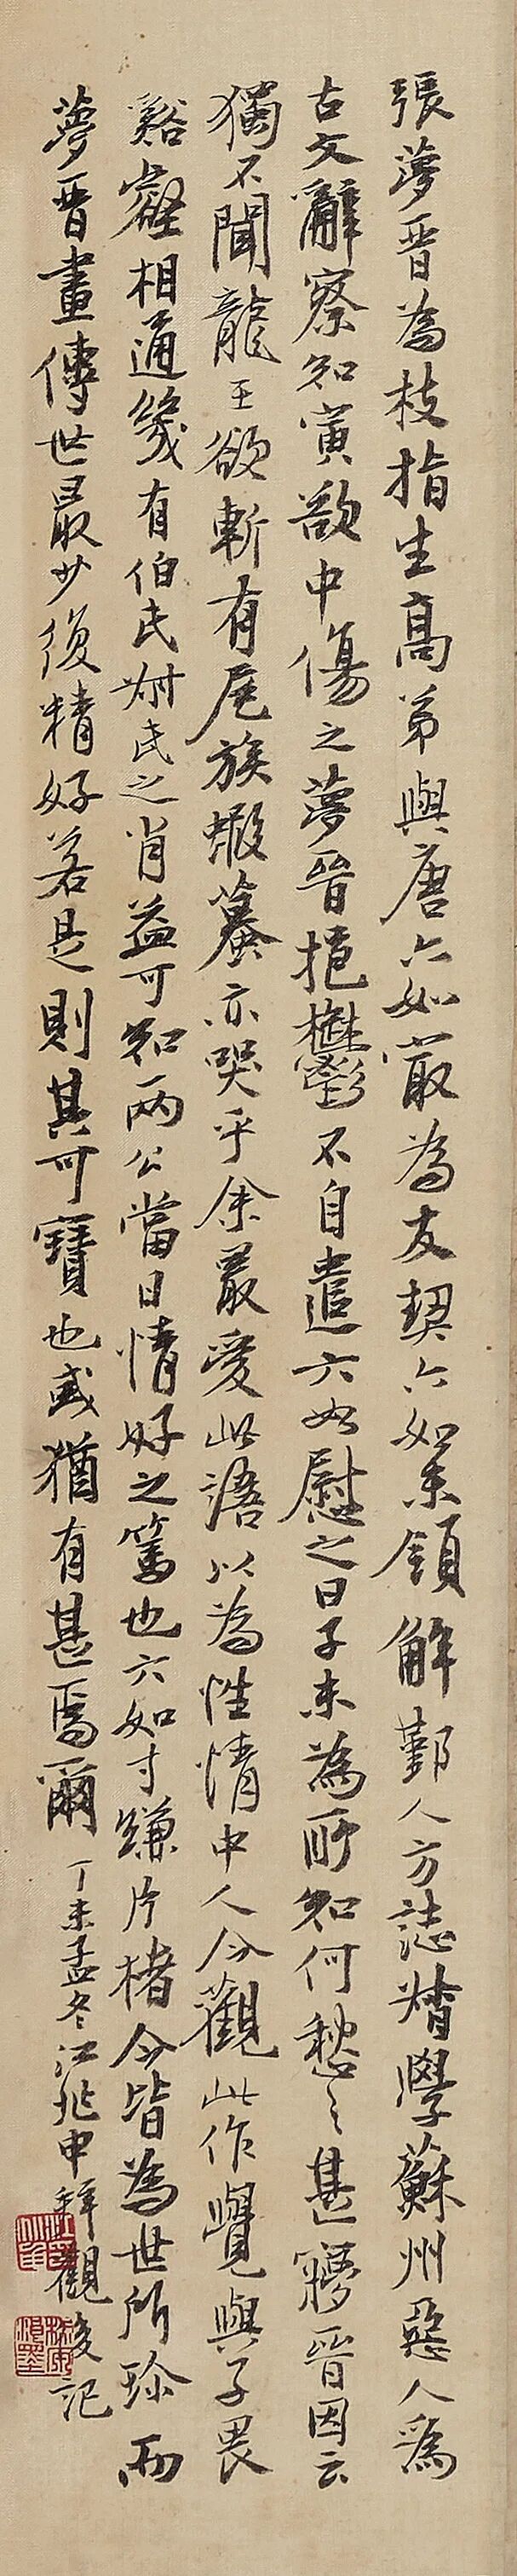 張夢晉為枝指生高弟與唐六如最為友契六如未領解鄞人方誌督學蘇州惡人為
古文辭察知寅欲中傷之夢晉挹鬱不自遣六如慰之曰子未為所知何愁之甚夢晉因云
獨不聞龍王欲斬有尾族蝦蟇亦哭乎余最愛此語以為性情中人今觀此作覺與子畏
谿壑相通幾有伯氏埘氏之肖益可知兩公當日情好之篤也六如寸縑片楮今皆為世所珍而
夢晉畫傳世最少復精好若是則其可寶也或猶有甚焉爾 丁未孟冬江兆申拜觀後記